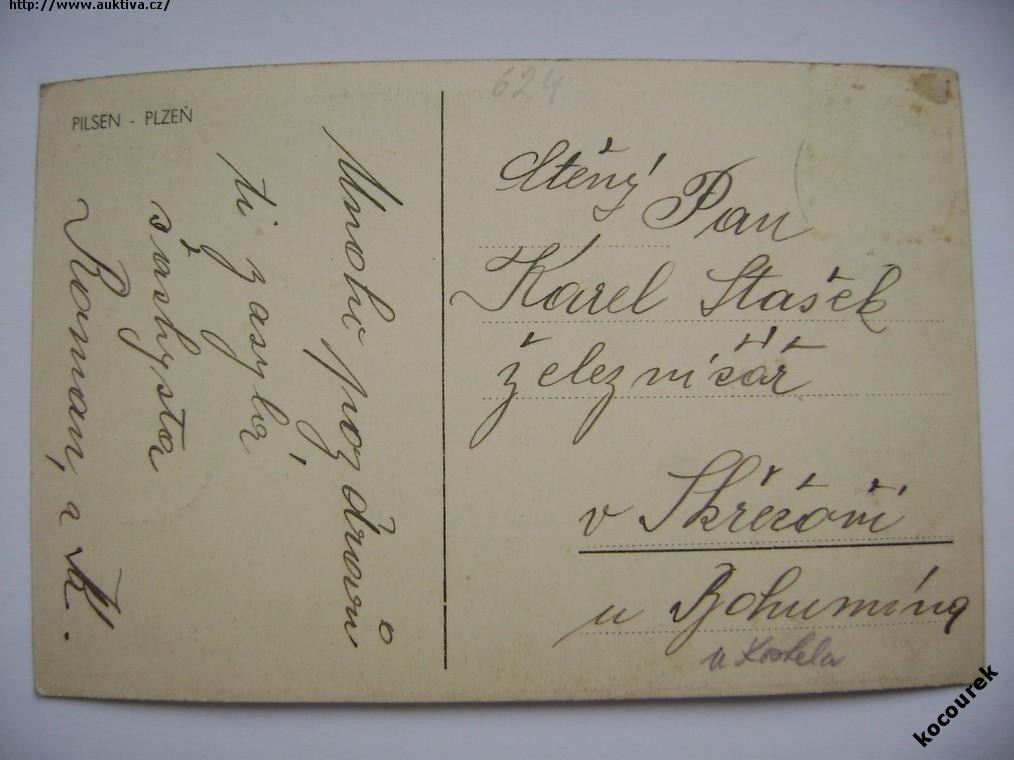 http://www.auktiva.cz/
PILSEN - PLZEŇ
624
Mnoho pozdravů
ti zasýlá
Roman, a K.
Ctěný Pan
Karel Stašek
železničář
v Skřečoni
u Bohumína
u Kostela
kocourek